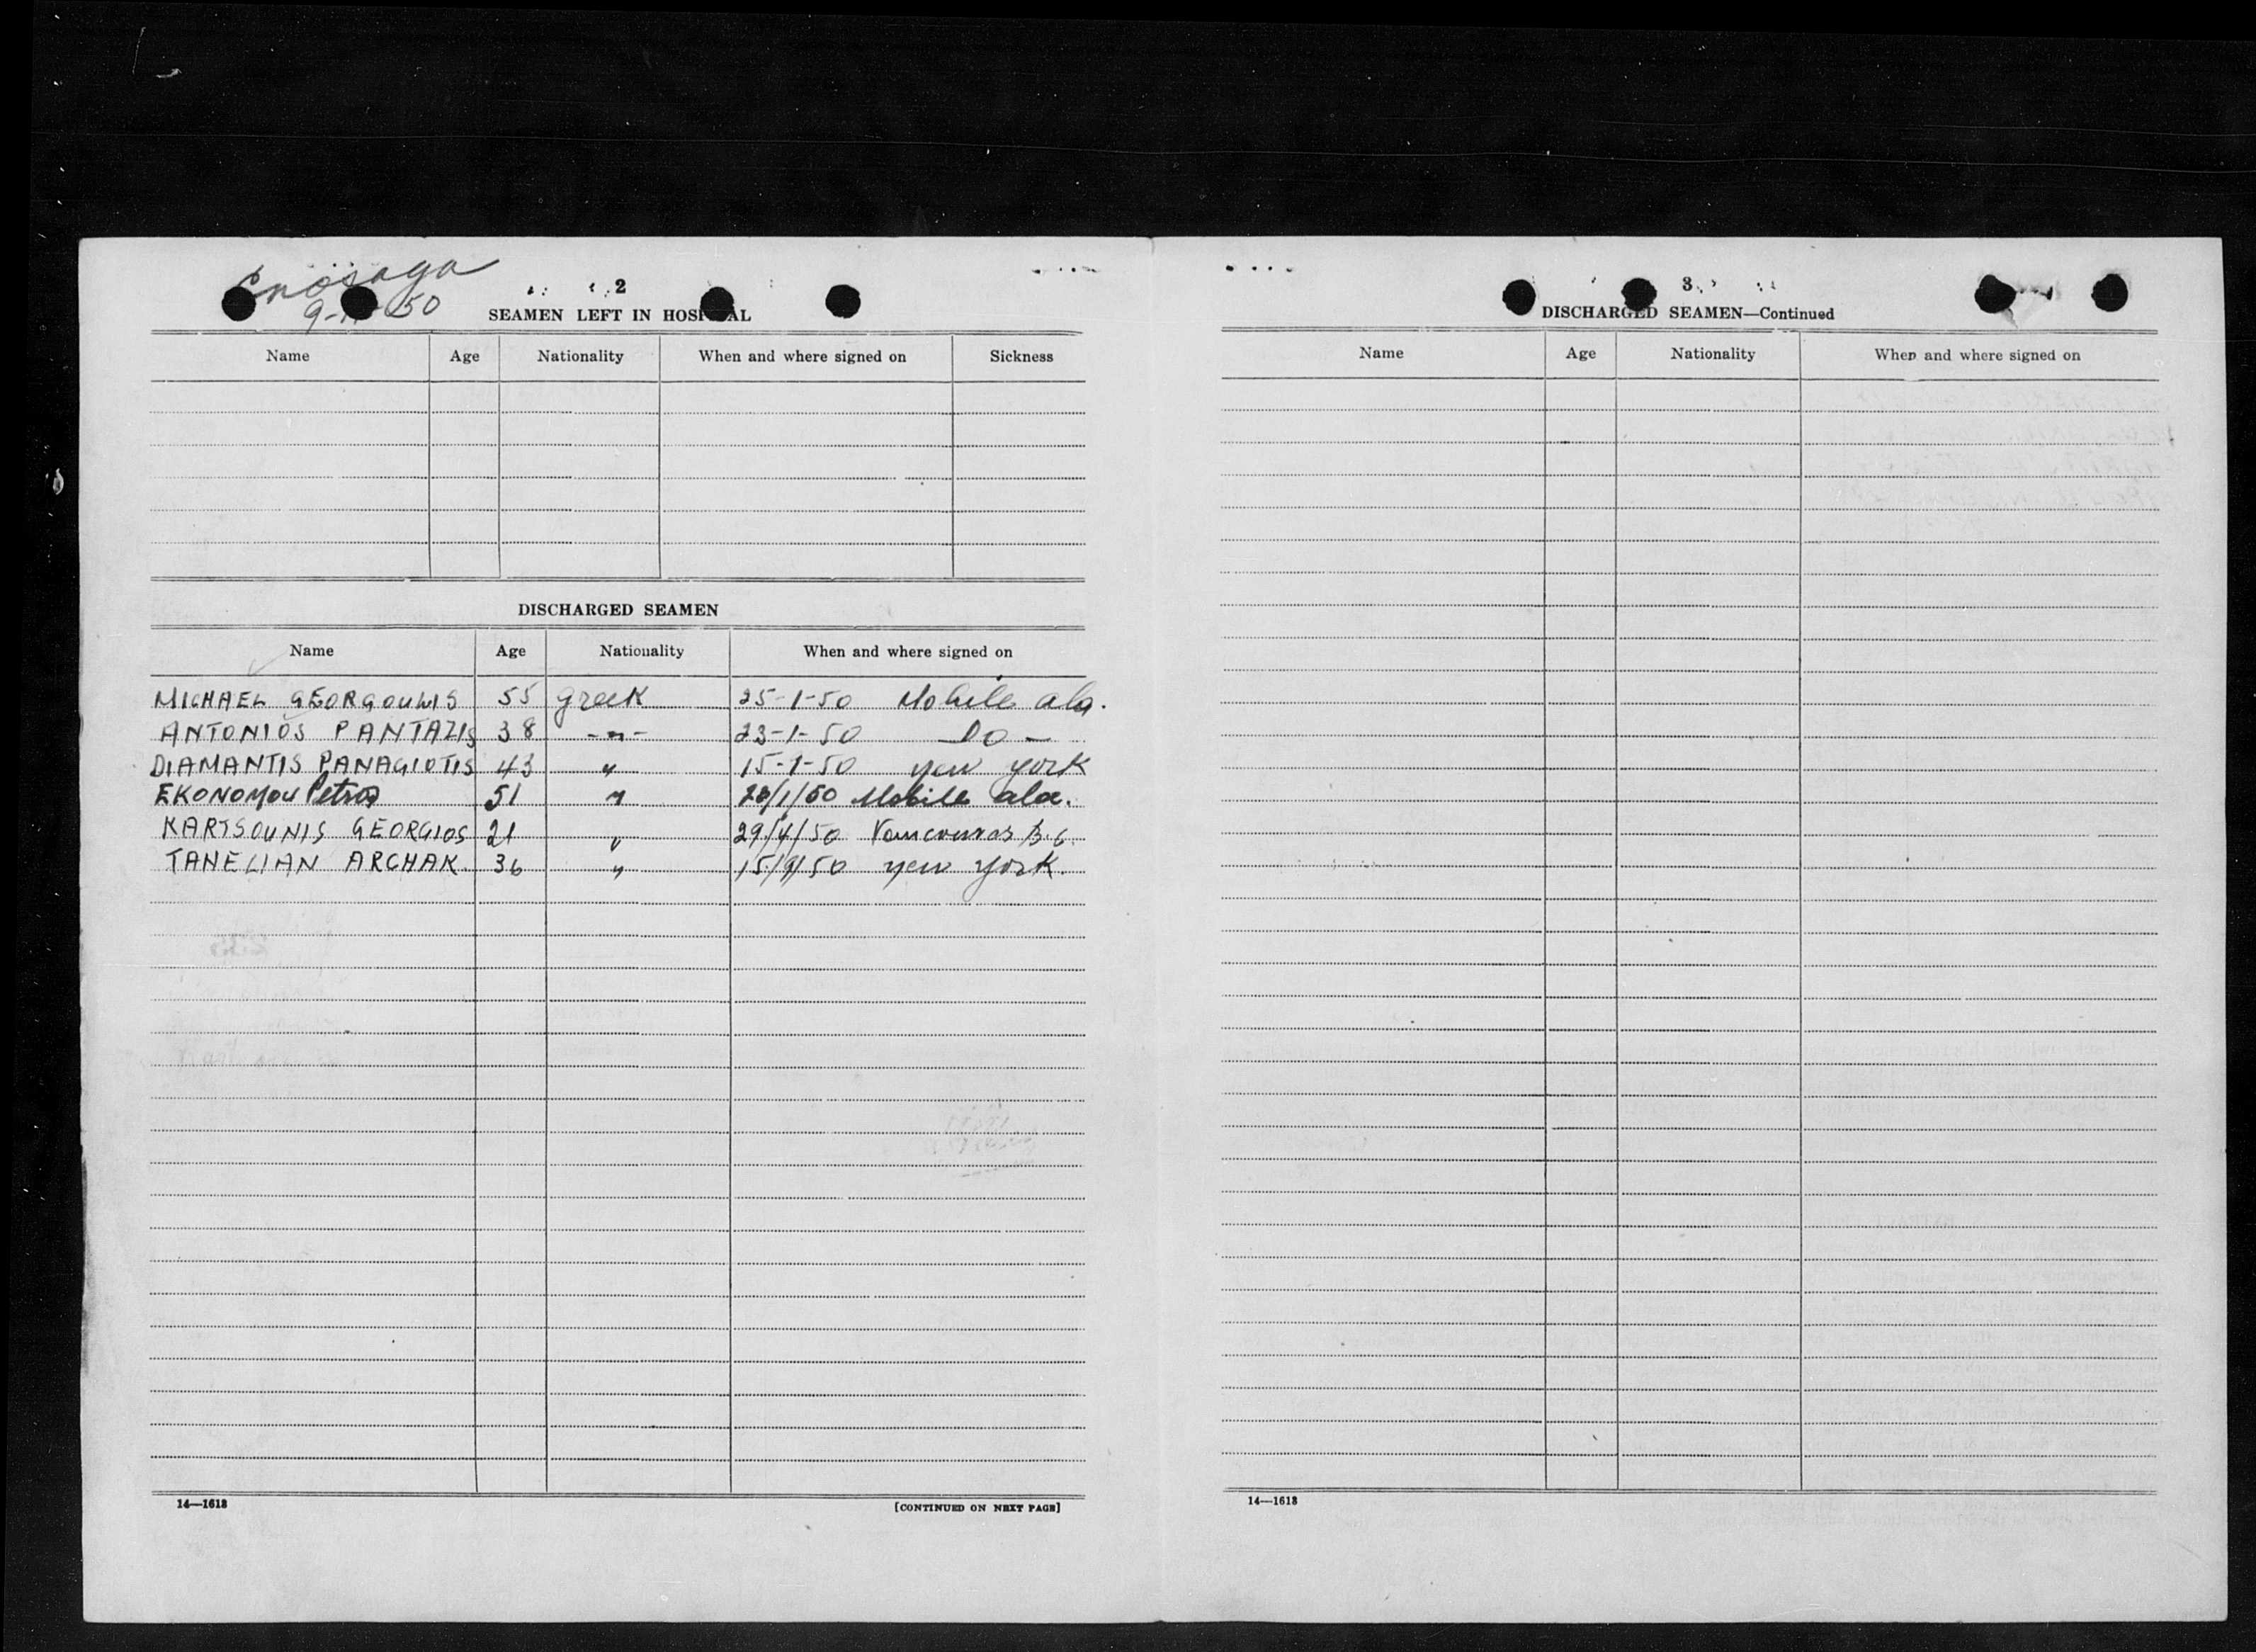 2
SEAMEN LEFT IN HOSPITAL
Name Age Nationality When and where signed on Sickness
DISCHARGED SEAMEN
Name Age Nationality When and where signed on
MICHAEL GEORGOULIS 55 greek 25-1-50 Mobile ala.
ANTONIOS PANTAZIS 38 -"- 23-1-50 Do -
DIAMANTIS PANAGIOTIS 43 " 15-9-50 New york
EKONOMOU Petros 51 " /1/50 Mobile ala.
KARTSOUNIS GEORGIOS 21 " 29/4/50 Vancouver B.C.
TANELIAN ARCHAK. 36 " 15/9/50 New York.
14—1618
[CONTINUED ON NEXT PAGE]
3
DISCHARGED SEAMEN—Continued
Name Age Nationality When and where signed on
14—1618